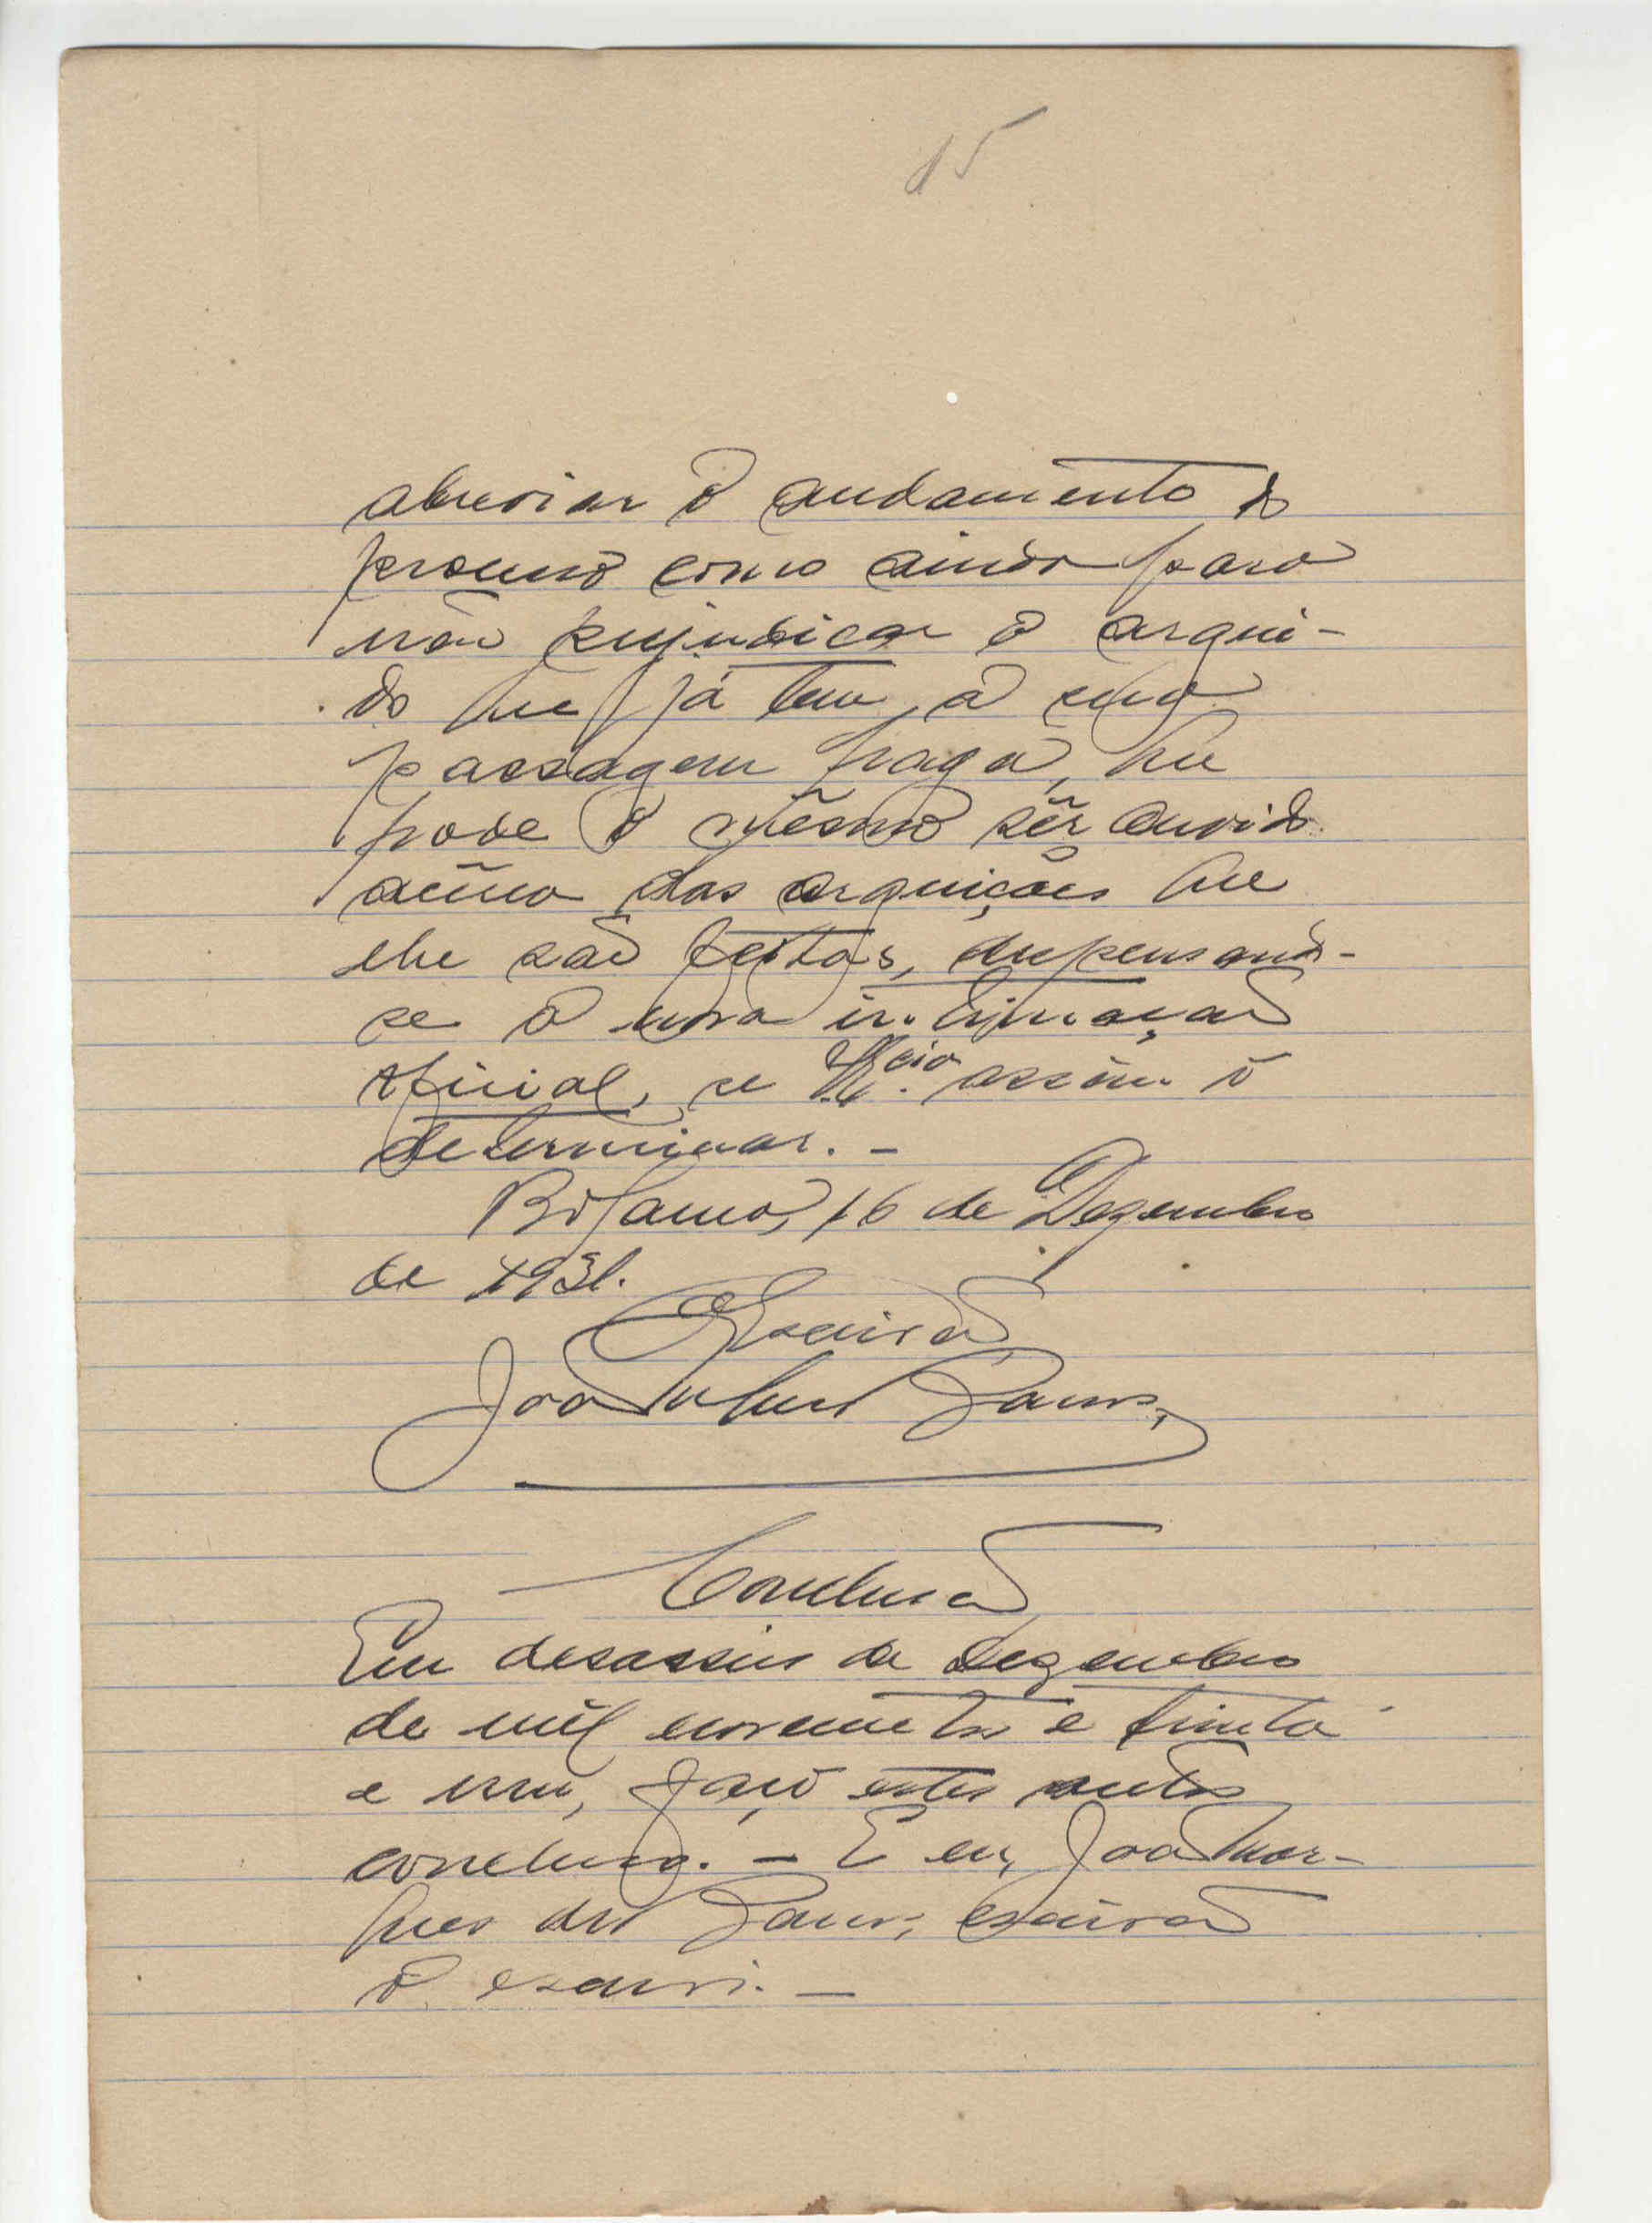 15
abreviar ô andamento do
processo como ainda para
não prejudicar o argui-
do que já tem a sua
passagem paga, que
pode ô mêsmo sêr ouvido
acêrca das arguições que
lhe são feitas, dispensando-
se a nova intimação
oficial, se V. Ex.cia assim ô
determinar. -
Bolama, 16 de Dezembro
de 1931.
O Escrivão
João Marques dos
Conclusão
Em desasseis de Dezembro
de mil novecentos e trinta
e um, faço estes autos
conclusos. - E eu, João Mar-
ques dos escrivão
ô escrevi. -